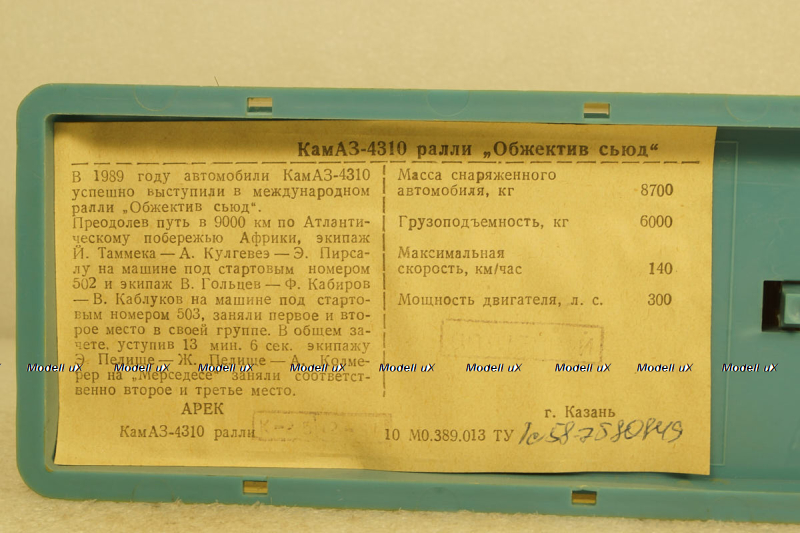 КамАЗ-4310 ралли „Обжектив сьюд“
В 1989 году автомобили КамАЗ-4310
успешно выступили в международном
ралли „Обжектив сьюд“.
Преодолев путь в 9000 км по Атланти-
ческому побережью Африки, экипаж
Й. Таммека — А. Кулгевез — Э. Пирса-
лу на машине под стартовым номером
502 и экипаж В. Гольцев — Ф. Кабиров
— В. Каблуков на машине под старто-
вым номером 503, заняли первое и вто-
рое место в своей группе. В общем за-
чете, уступив 13 мин. 6 сек. экипажу
Э. Педише — Ж. Педише — А. Колме-
рер на „Мерседесе“ заняли соответст-
венно второе и третье место.
АРЕК
КамАЗ-4310 ралли
Масса снаряженного
автомобиля, кг 8700
Грузоподъемность, кг 6000
Максимальная
скорость, км/час 140
Мощность двигателя, л. с. 300
г. Казань
10 М0.389.013 ТУ
Modell uX Modell uX Modell uX Modell uX Modell uX Modell uX Modell uX Modell uX Modell uX